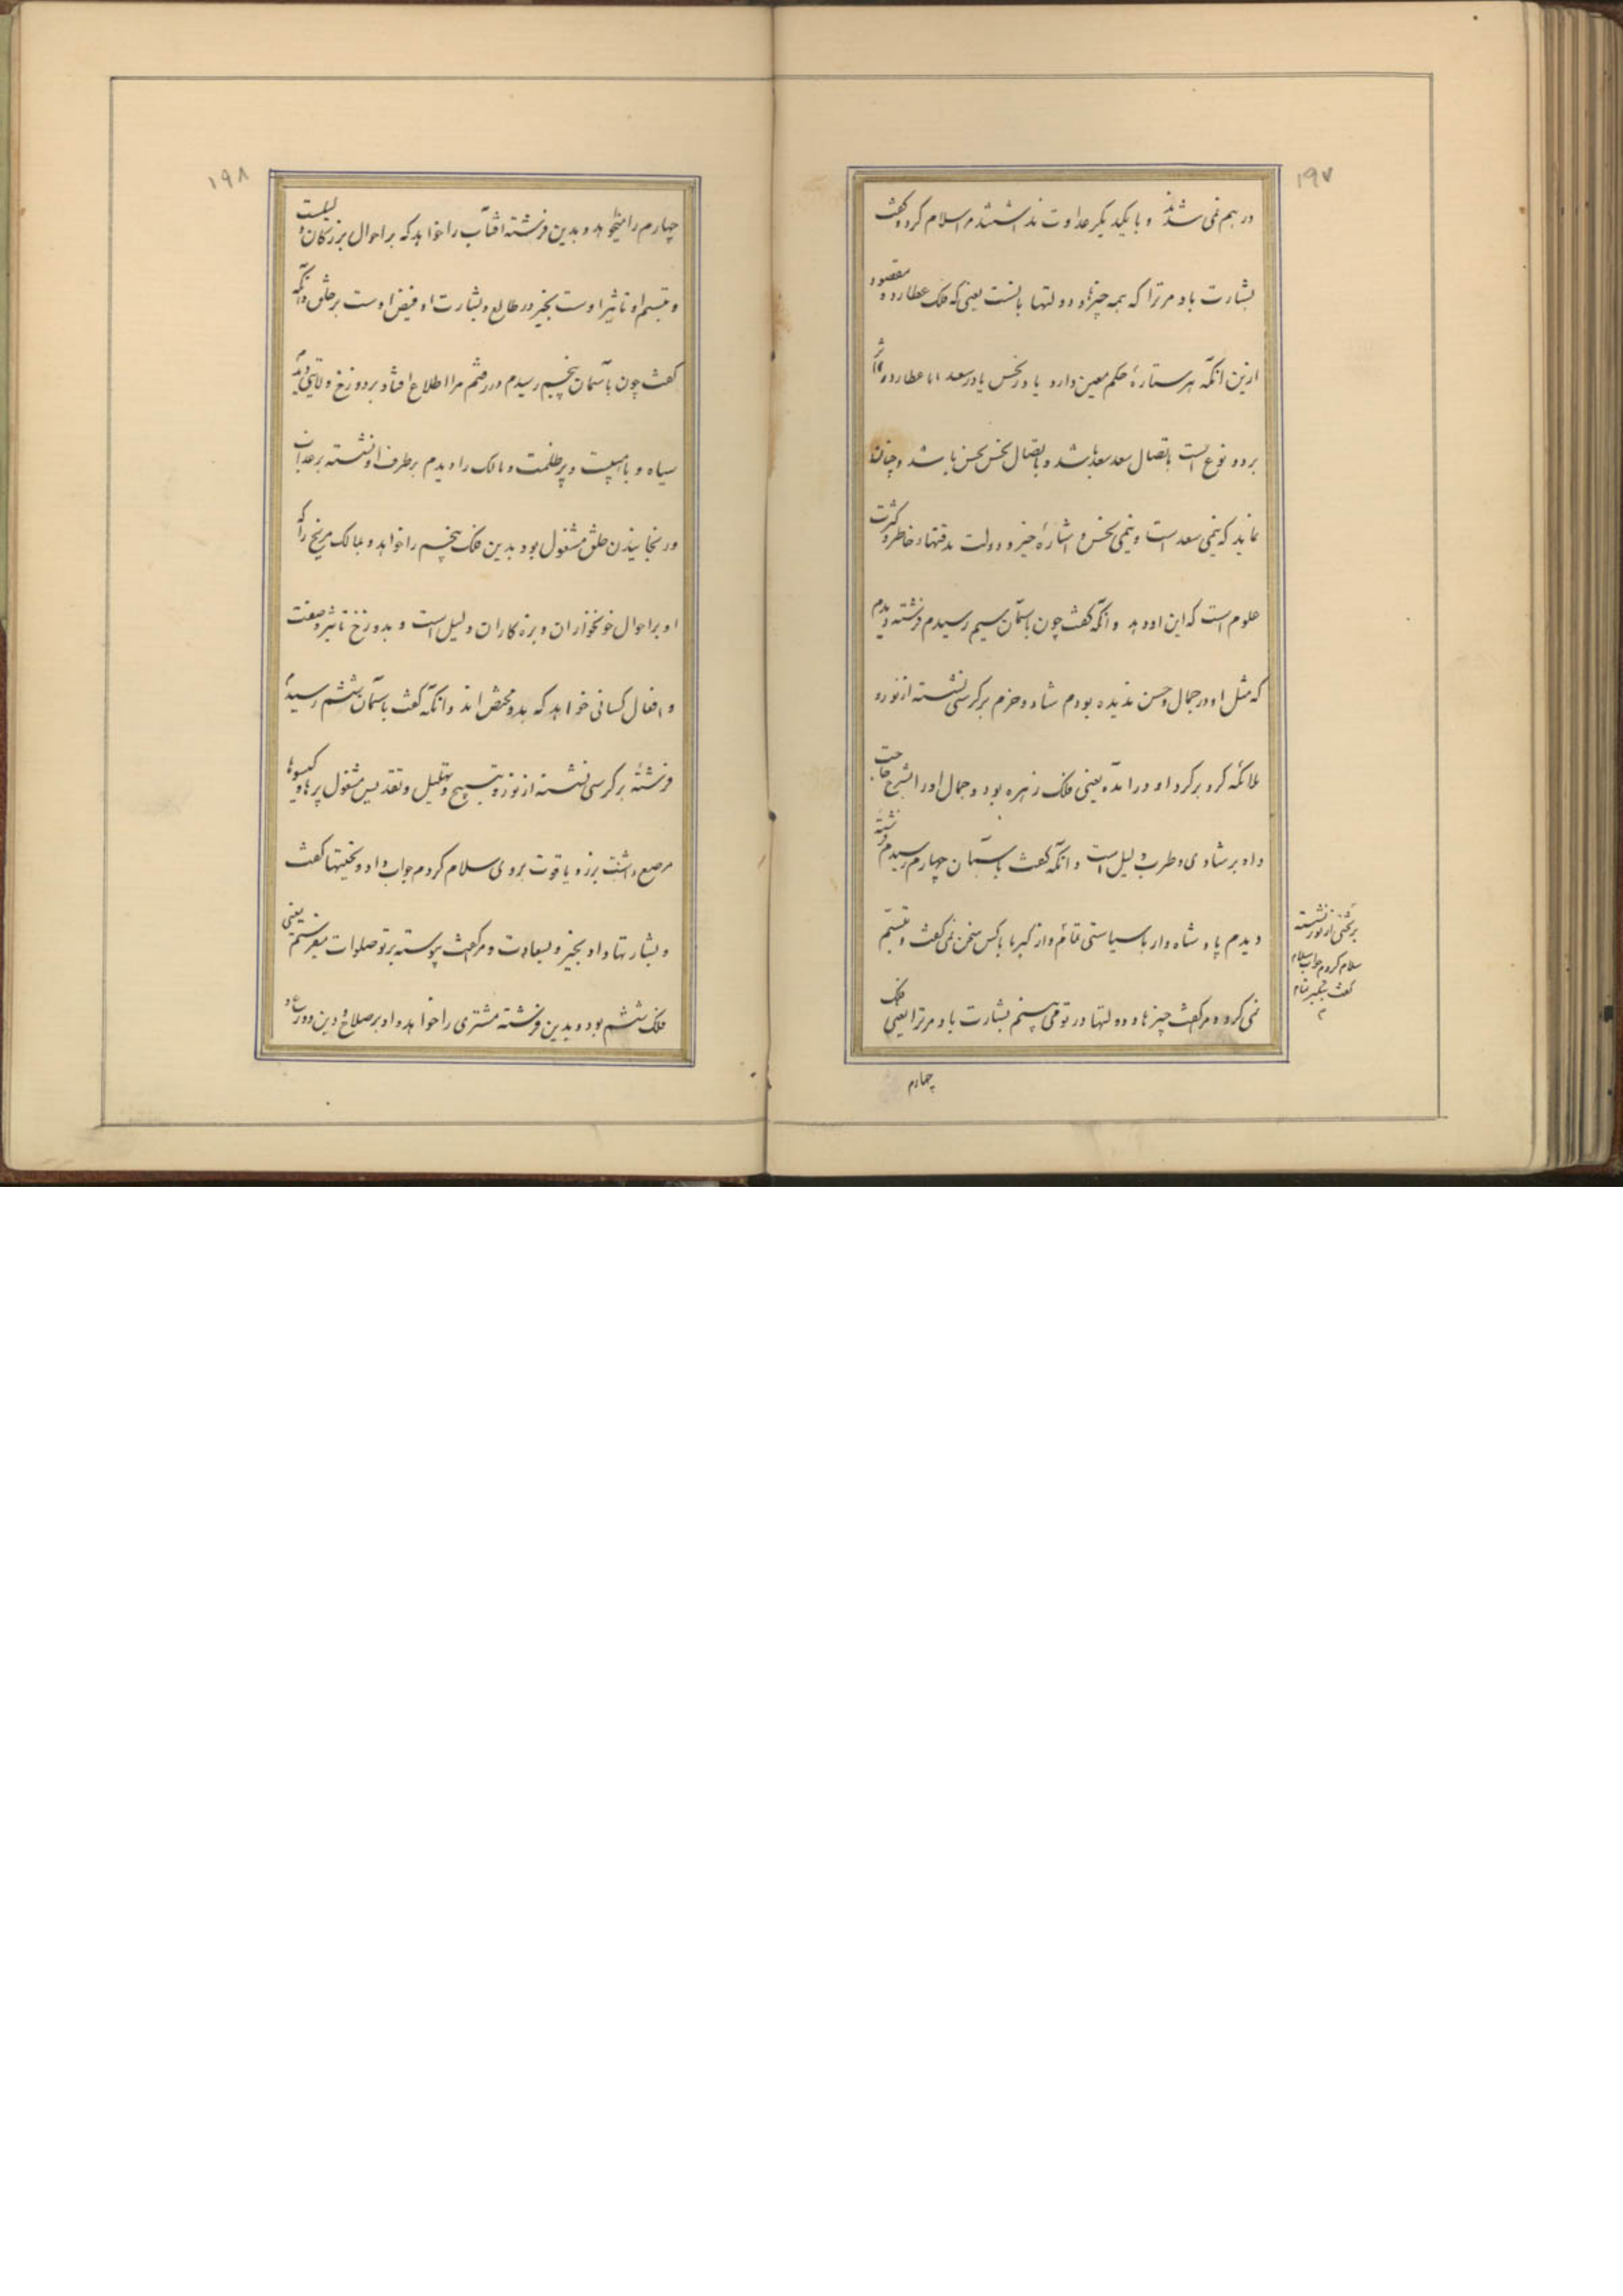 ۱۹۷
در هم نمی شدند و با یکدیگر عداوت نداشتند مرا سلام کرد و گفت
بشارت باد مر ترا که همه چیزها و دولتها با تست یعنی که فلک عطارد و مقصود
ازین آنکه هر ستارهٔ حکم معین دارد یا در نحس یا در سعد اما عطارد را اثر
بر دو نوع است باتصال سعد سعد باشد و باتصال نحس نحس باشد و چنان
نماید که نیمی سعد است و نیمی نحس و اشارهٔ خیر و دولت بدقتها خاطر و کثرت
علوم است که این او دهد و آنکه گفت چون باسمان سیم رسیدم فرشته دیدم
که مثل او در جمال و حسن ندیده بودم شاد و خرم بر کرسی نشسته از نور و
ملائکه گرد بر گرد او در آمده یعنی فلک زهره بود و جمال او را بشرح حاجت
و او بر شادی و طرب دلیل است و آنکه گفت باسمان چهارم رسیدم فرشته
دیدم پادشاه وار با سیاستی تمام و از کبر با کس سخن نمی گفت و تبسم
نمی کرد و مرا گفت چیزها و دولتها در تو می بینم بشارت باد مر ترا یعنی فلک
بر تختی از نور نشسته
سلام کردم جواب سلام
گفت بتکبر تمام
چهارم
۱۹۸
چهارم را میخواهد و بدین فرشته آفتاب را خواهد که بر احوال بزرگان دلیلست
و تبسم او تاثیر اوست بخیر در طالع و بشارت او فیض اوست بر خلق و آنکه
گفت چون باسمان پنجم رسیدم در رفتم مرا اطلاع افتاد بر دوزخ ولایتی دیدم
سیاه و با هیبت و پر ظلمت و مالک را دیدم بر طرف او نشسته بر عذاب
و رنجانیدن خلق مشغول بود بدین فلک پنجم را خواهد و بمالک مریخ را که
او بر احوال خونخواران و بزه کاران دلیل است و بدوزخ تاثیر و صفت
و افعال کسانی خواهد که بد محض اند و آنکه گفت باسمان ششم رسیدم
فرشتهٔ بر کرسی نشسته از نور و بتسبیح و تهلیل و تقدیس مشغول پرها و گیسوها
مرصع داشت بزر و یاقوت بر وی سلام کردم جواب داد و تحیتها گفت
و بشارتها داد بخیر و سعادت و مرا گفت پیوسته بر تو صلوات میفرستم یعنی
فلک ششم بود و بدین فرشته مشتری را خواهد و او بر صلاح و دین و ورع و